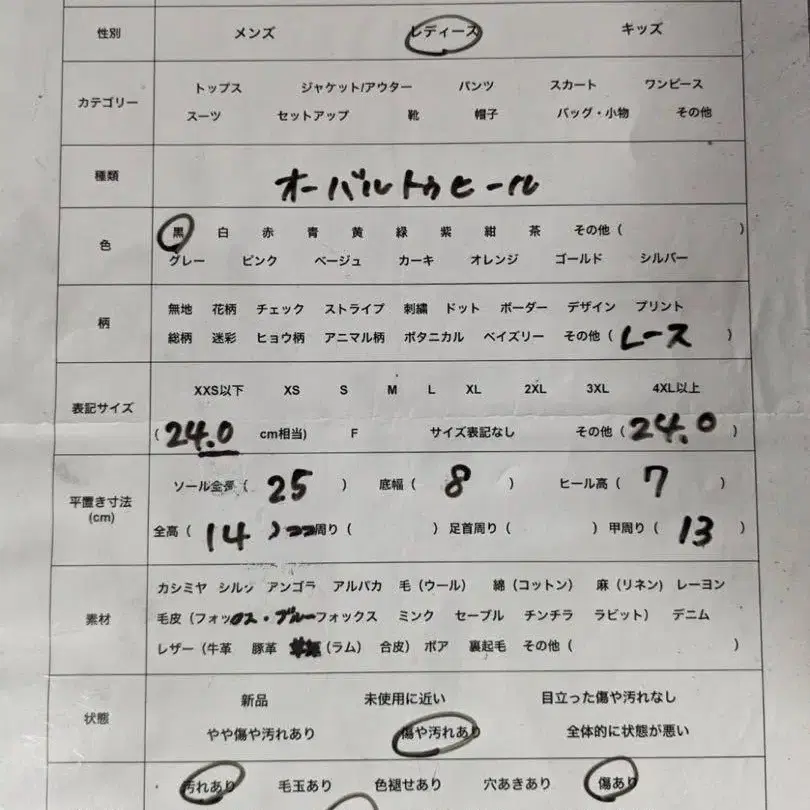 性別 メンズ レディース キッズ
カテゴリー
トップス ジャケット/アウター パンツ スカート ワンピース
スーツ セットアップ 靴 帽子 バッグ・小物 その他
種類 オーバルトゥヒール
色
黒 白 赤 青 黄 緑 紫 紺 茶 その他 ( )
グレー ピンク ベージュ カーキ オレンジ ゴールド シルバー
柄
無地 花柄 チェック ストライプ 刺繍 ドット ボーダー デザイン プリント
総柄 迷彩 ヒョウ柄 アニマル柄 ボタニカル ペイズリー その他 ( レース )
表記サイズ
XXS以下 XS S M L XL 2XL 3XL 4XL以上
( 24.0 cm相当) F サイズ表記なし その他 ( 24.0 )
平置き寸法
(cm)
ソール全長 ( 25 ) 底幅 ( 8 ) ヒール高 ( 7 )
全高 ( 14 ) 周り ( ) 足首周り ( ) 甲周り ( 13 )
素材
カシミヤ シルク アンゴラ アルパカ 毛 (ウール) 綿 (コットン) 麻 (リネン) レーヨン
毛皮 (フォックス・ブルーフォックス ミンク セーブル チンチラ ラビット) デニム
レザー (牛革 豚革 (ラム) 合皮) ボア 裏起毛 その他 ( )
状態
新品 未使用に近い 目立った傷や汚れなし
やや傷や汚れあり 傷や汚れあり 全体的に状態が悪い
汚れあり 毛玉あり 色褪せあり 穴あきあり 傷あり